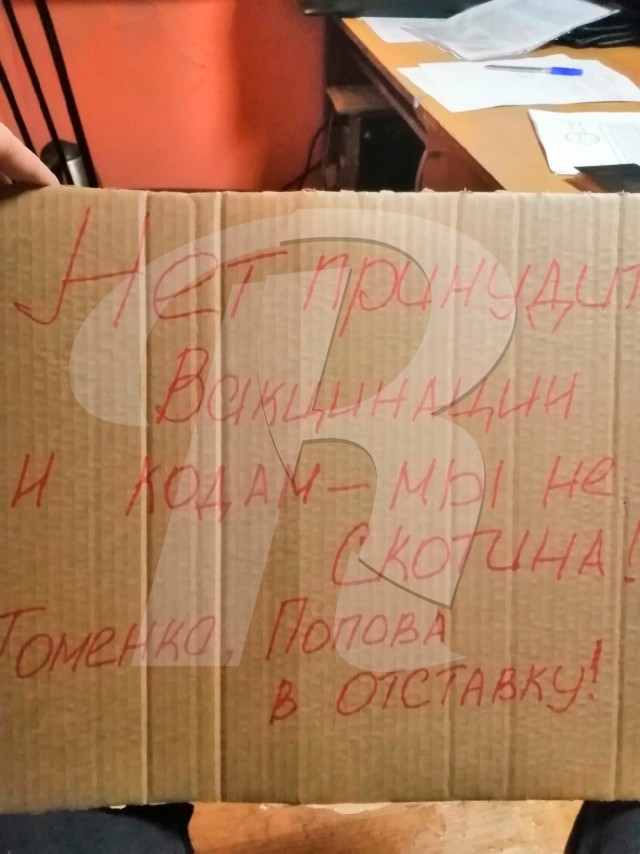 Нет принудит
Вакцинации
и кодам – мы не
скотина!
Томенко, Попова
в отставку!